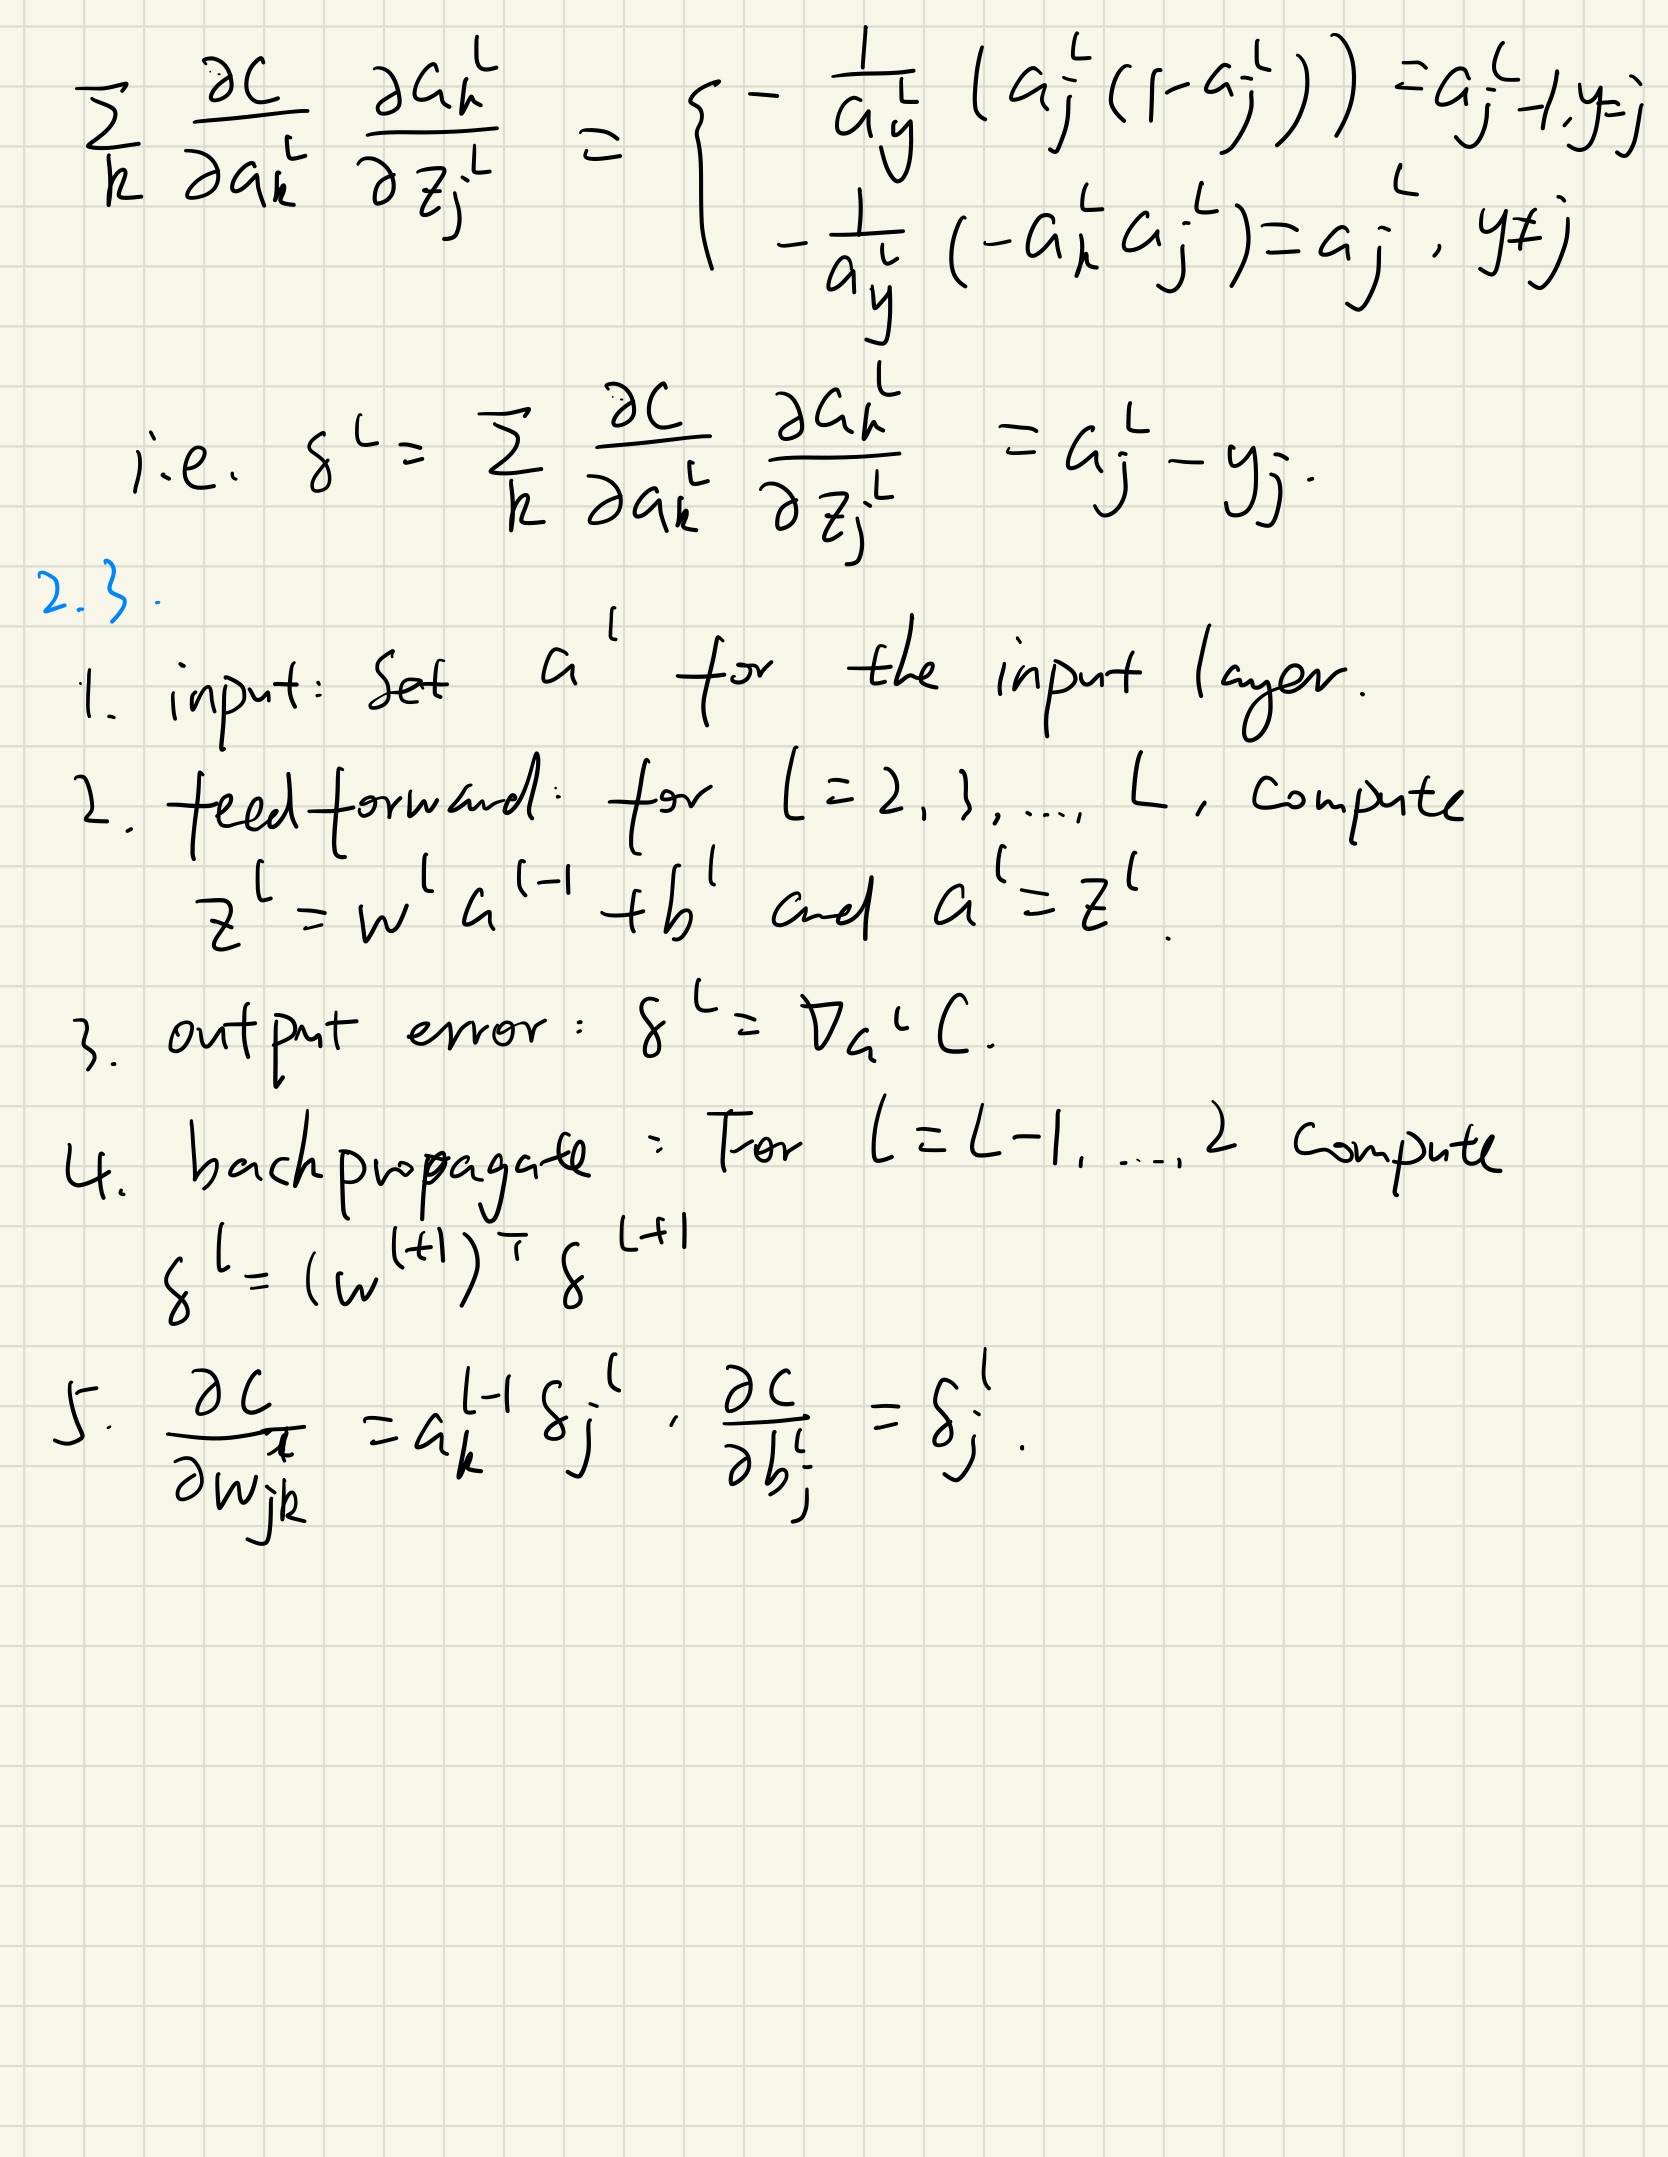 ∑_k ∂C/∂a_k^L ∂a_k^L/∂z_j^L = { -1/a_y^L (a_j^L(1-a_j^L)) = a_j^L -1, y=j
-1/a_y^L (-a_k^L a_j^L) = a_j^L, y≠j
i.e. δ^L = ∑_k ∂C/∂a_k^L ∂a_k^L/∂z_j^L = a_j^L - y_j.
2.3.
1. input: Set a^l for the input layer.
2. feedforward: for l=2,3,..., L, compute
z^l = w^l a^{l-1} + b^l and a^l = z^l.
3. output error: δ^L = ∇_{a^L} C.
4. backpropagate: For l=L-1,...,2 compute
δ^l = (w^{l+1})^T δ^{l+1}
5. ∂C/∂w_{jk}^l = a_k^{l-1} δ_j^l, ∂C/∂b_j^l = δ_j^l.